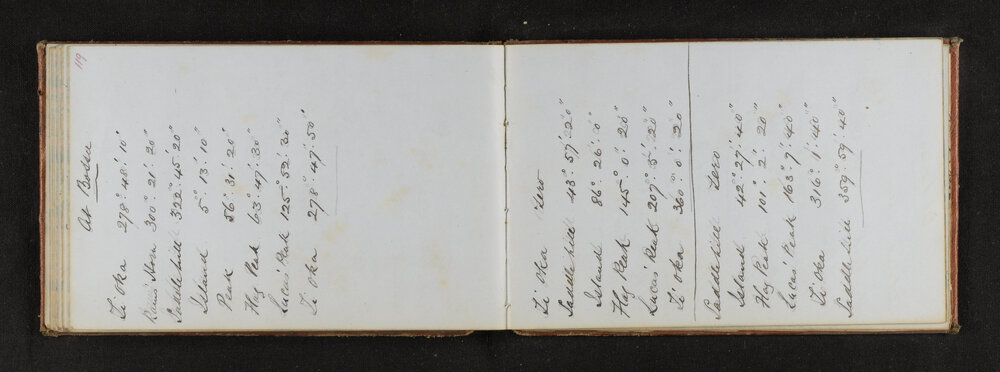 119
At Bossu
Ti Oka 278°. 48'. 10"
Horn 300°. 21'. 20"
Saddle hill 322°. 45. 20"
Island 5°. 13'. 10"
Peak 56°. 31'. 20"
Flag Peak 63°. 47'. 30"
Lucas' Peak 125°. 52'. 30"
Ti Oka 278°. 47'. 50"
Ti Oka Zero
Saddle hill 43°. 57'. 20"
Island 86°. 26'. 0"
Flag Peak 145°. 0'. 20"
Lucas' Peak 207°. 5'. 20"
Ti Oka 360°. 0'. 20"
Saddle hill Zero
Island 42°. 27'. 40"
Flag Peak 101°. 2'. 20"
Lucas' Peak 163°. 7'. 40"
Ti Oka 316°. 1'. 40"
Saddle hill 359°. 59'. 40"